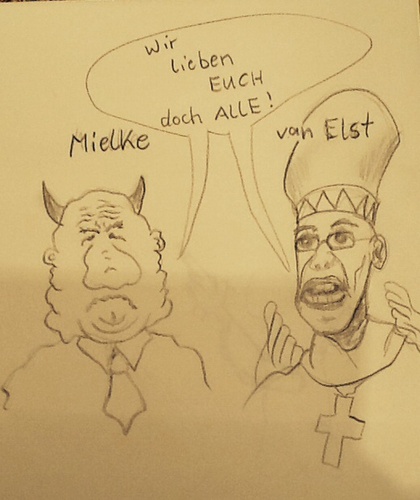 Wir
lieben
EUCH
doch ALLE!
Mielke
van Elst